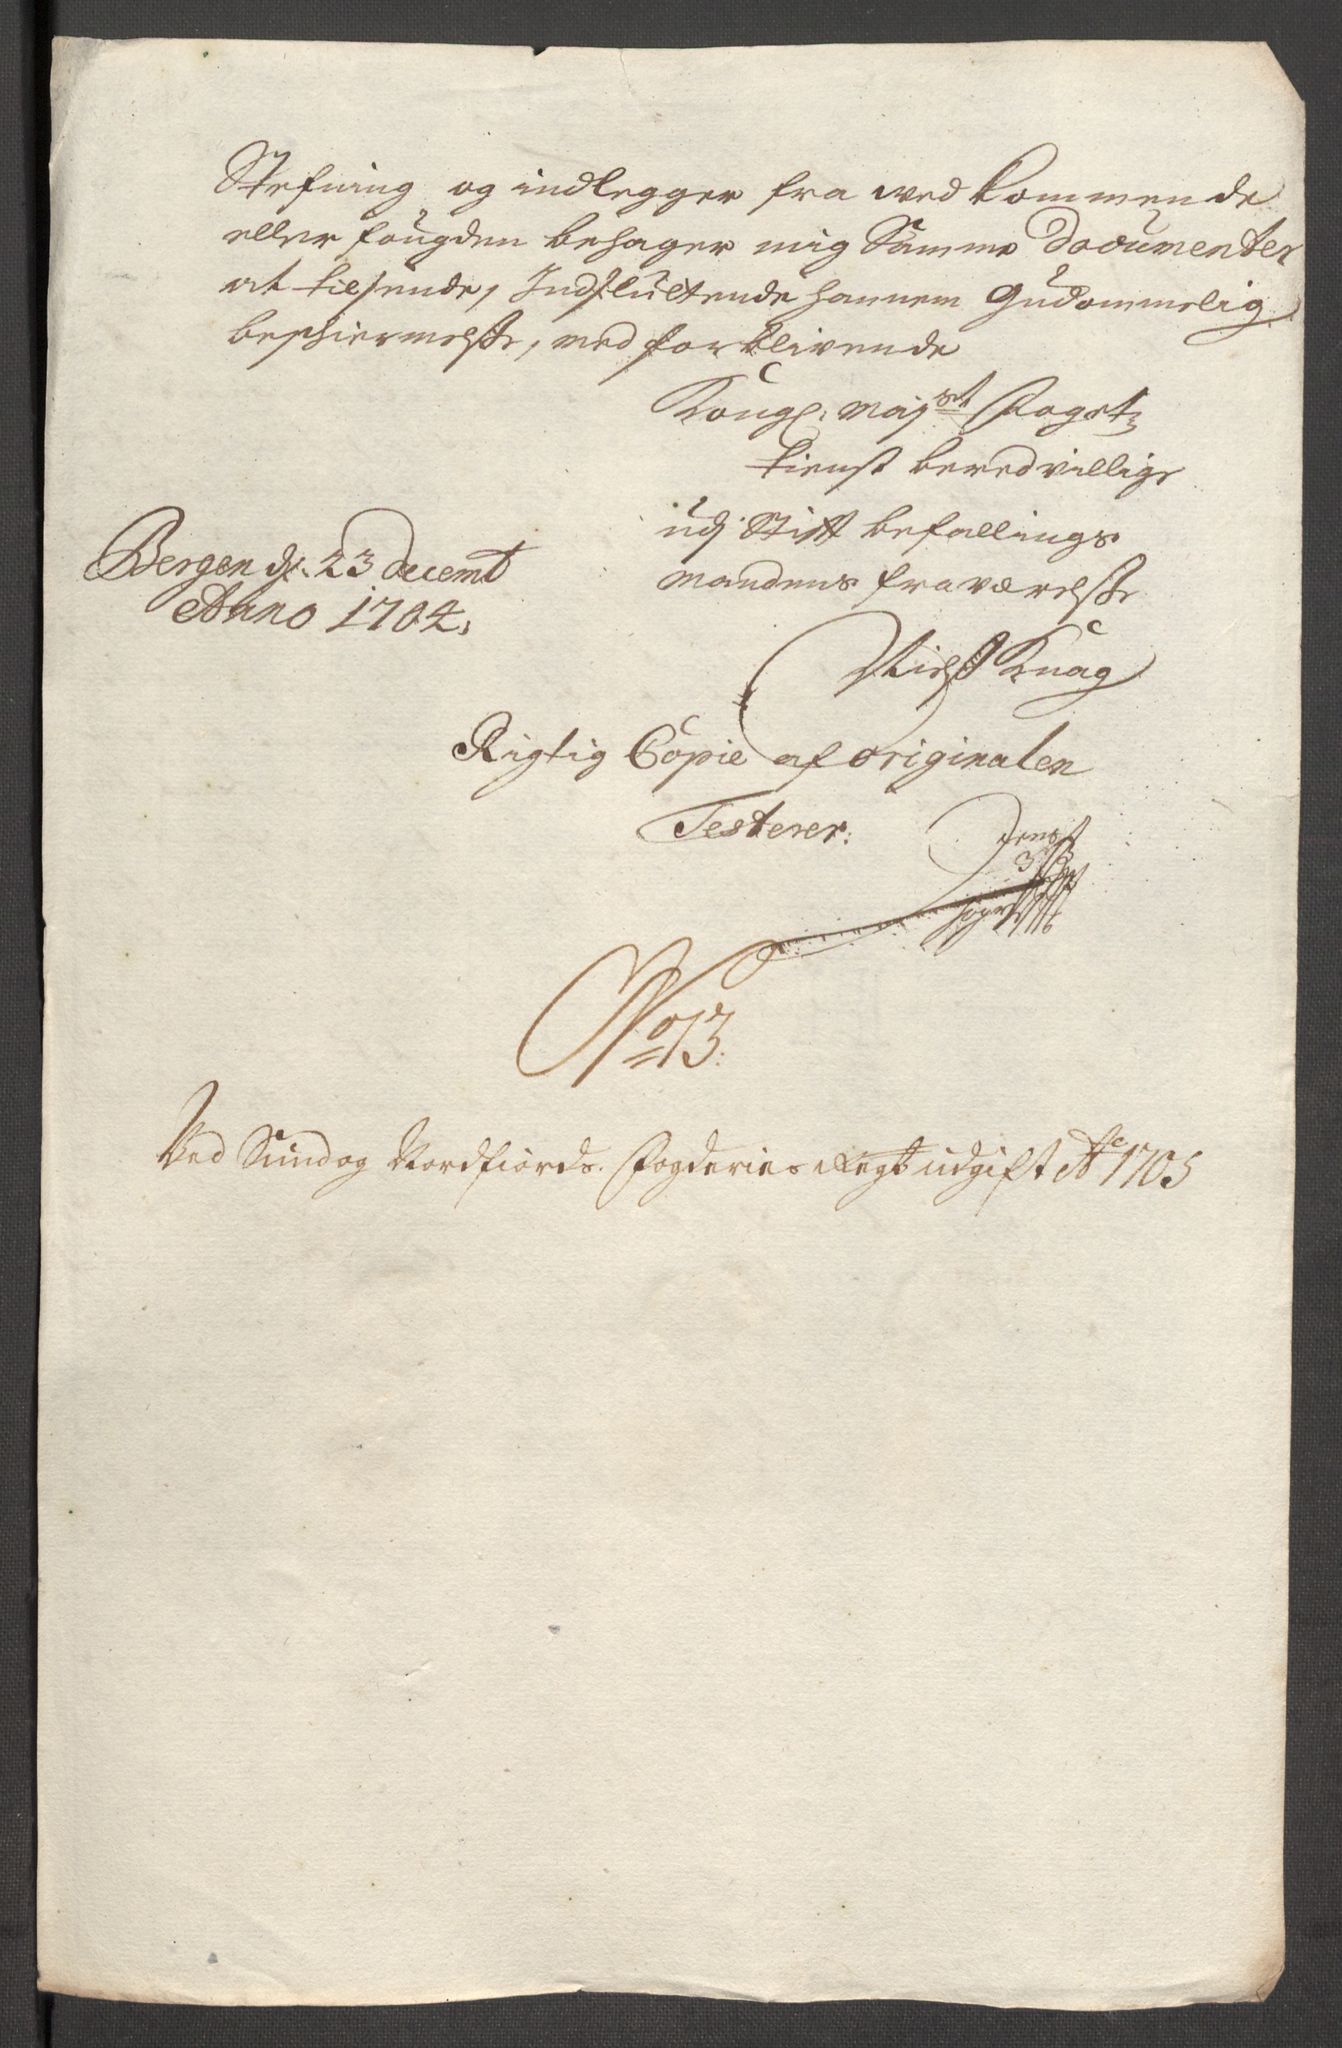 Stefning og indlegger fra wedkommende
eller fougden behager mig Samme Documenter
at tilsende, Indsluttende hannem Gudommelig
beschiermelsse, med forblivende
Kongl: Maj<sup>st</sup> Fogets
tienst beredvillige
udj Stift befallings
mandens fraværelsse
Nielss Knag
Bergen d: 23 decemb
Anno 1704,
Rigtig Copie af originalen
Testerer:
No 73:
Ved Sund og Nordfiords Fogderies Regb udgift Ao 1705